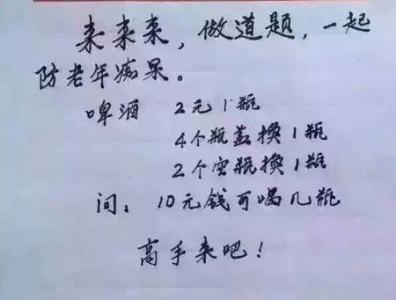 来来来，做道题，一起
防老年痴呆。
啤酒 2元1瓶
4个瓶盖换1瓶
2个空瓶换1瓶
问：10元钱可喝几瓶
高手来吧！